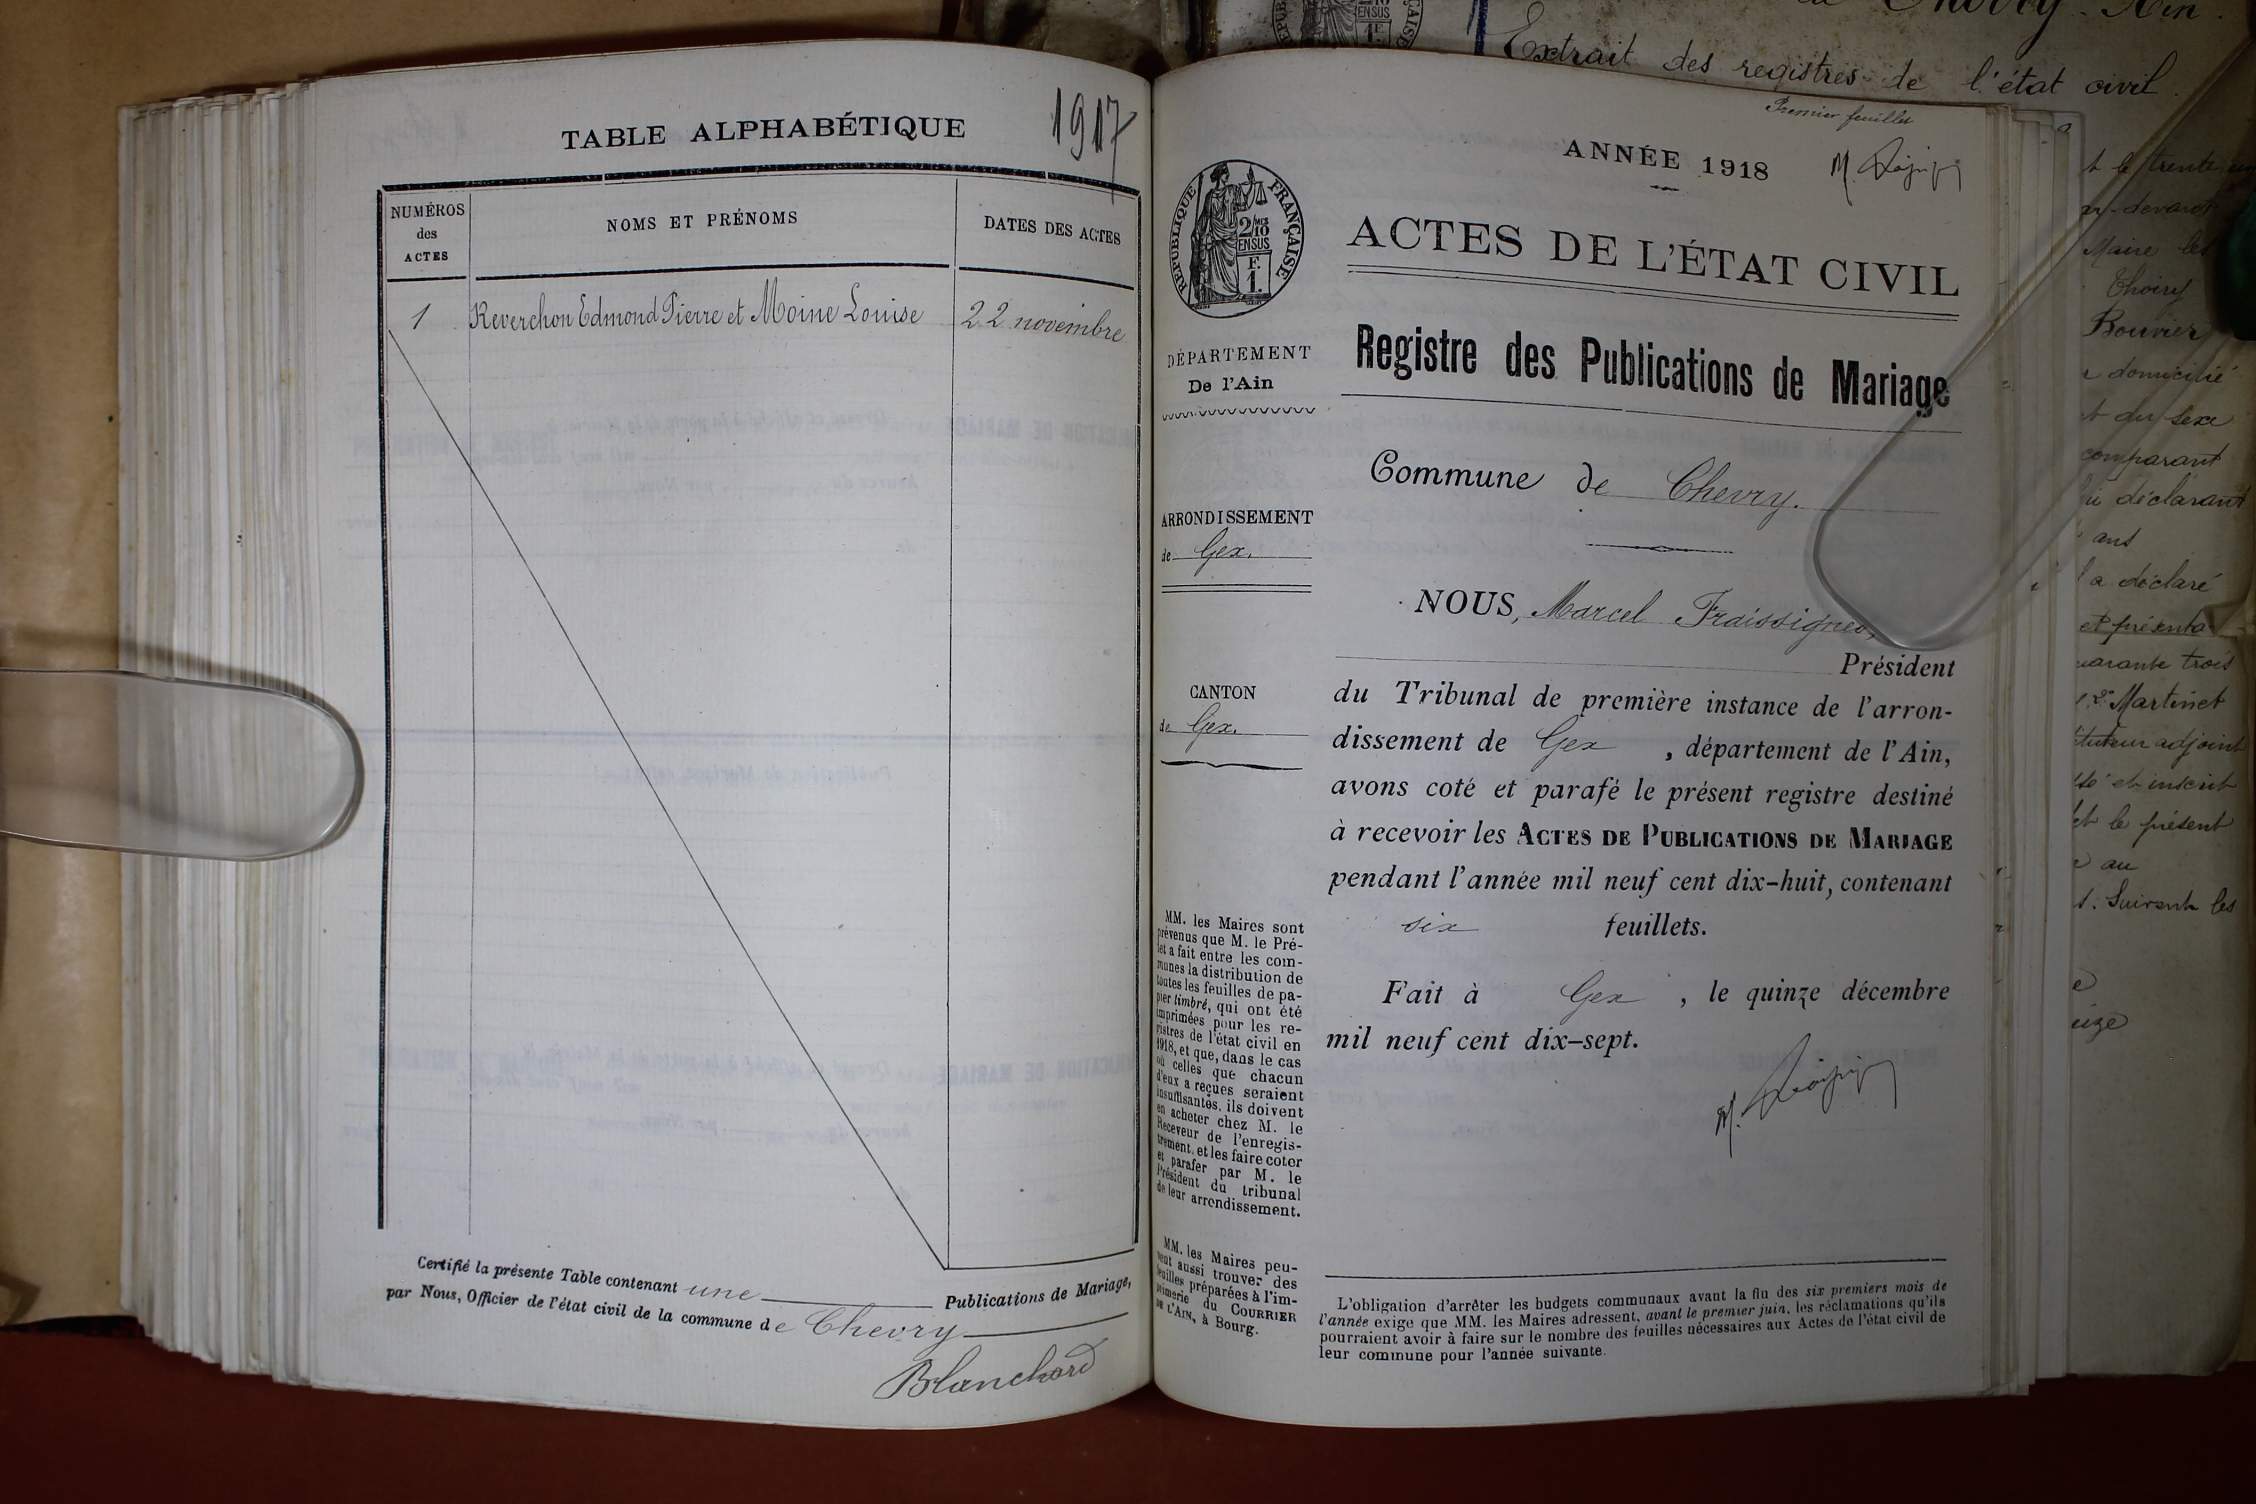 TABLE ALPHABÉTIQUE
1917
NUMÉROS
des
ACTES
NOMS ET PRÉNOMS
DATES DES ACTES
1 Reverchon Edmond Pierre et Moine Louise 22 novembre
Certifié la présente Table contenant une Publications de Mariage,
par Nous, Officier de l'état civil de la commune de Chevry
Blanchard
Premier feuillet
ANNÉE 1918
RÉPUBLIQUE FRANÇAISE
2/10
EN SUS
F.
1.
ACTES DE L'ÉTAT CIVIL
Registre des Publications de Mariage
DÉPARTEMENT
De l'Ain
ARRONDISSEMENT
de Gex.
CANTON
de Gex.
MM. les Maires sont
prévenus que M. le Pré-
fet a fait entre les com-
munes la distribution de
toutes les feuilles de pa-
pier timbré, qui ont été
imprimées pour les re-
gistres de l'état civil en
1918, et que, dans le cas
où celles que chacun
d'eux a reçues seraient
insuffisantes, ils doivent
en acheter chez M. le
Receveur de l'enregis-
trement, et les faire coter
et parafer par M. le
Président du tribunal
de leur arrondissement.
MM. les Maires peu-
vent aussi trouver des
feuilles préparées à l'im-
primerie du COURRIER
DE L'AIN, à Bourg.
Commune de Chevry.
NOUS, Marcel Fraissigneo,
Président
du Tribunal de première instance de l'arron-
dissement de Gex, département de l'Ain,
avons coté et parafé le présent registre destiné
à recevoir les ACTES DE PUBLICATIONS DE MARIAGE
pendant l'année mil neuf cent dix-huit, contenant
six feuillets.
Fait à Gex, le quinze décembre
mil neuf cent dix-sept.
L'obligation d'arrêter les budgets communaux avant la fin des six premiers mois de
l'année exige que MM. les Maires adressent, avant le premier juin, les réclamations qu'ils
pourraient avoir à faire sur le nombre des feuilles nécessaires aux Actes de l'état civil de
leur commune pour l'année suivante.
Extrait des registres de l'état civil.
Maire les
Thoiry
Bouvier
domicilié
du sexe
comparant
déclarant
ans
a déclaré
et présenta
trois
Martinet
adjoint
et inscrit
et le présent
au
Suivent les